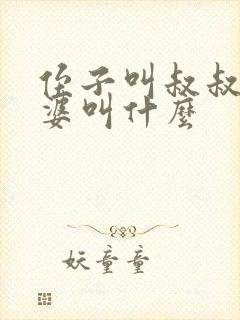 侄子叫叔叔
婆叫什麼
妖童童